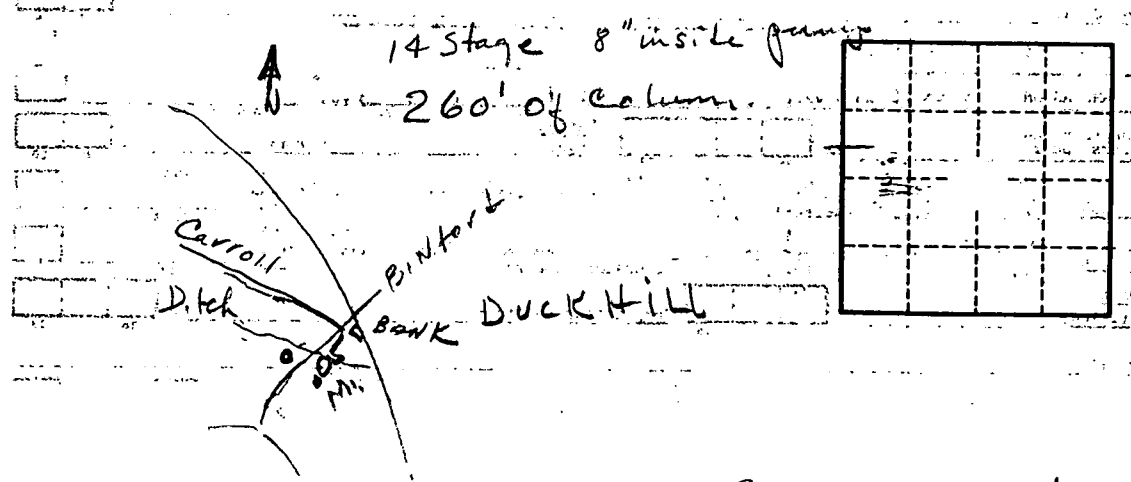 14 Stage 8" inside pump
260' of Column.
Carroll
Binford
Ditch
BANK
DUCK HILL
.05
Mi.